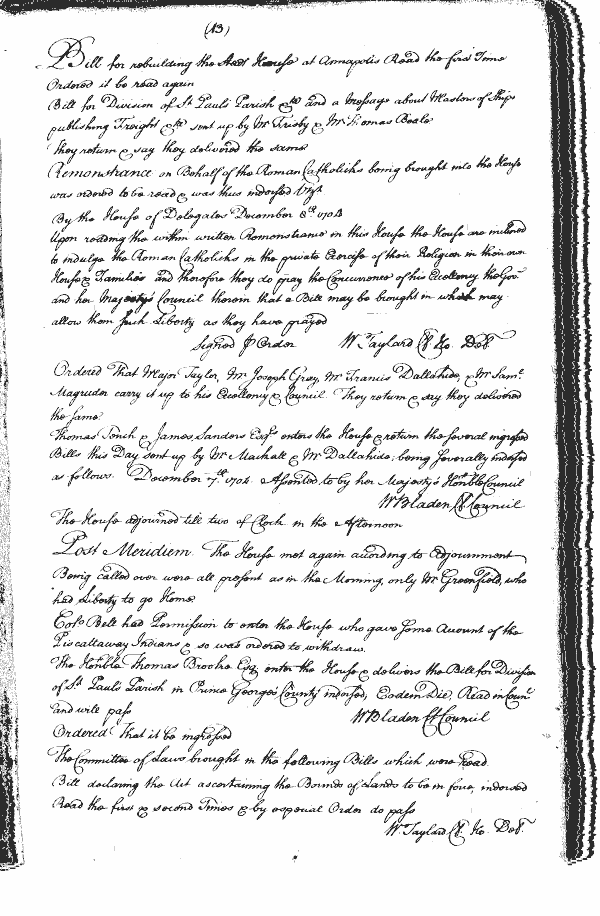 (13)
Bill for rebuilding the Stadt House at Annapolis Read the first Time
Ordered it be read again
Bill for Division of St. Pauls Parish &ca and a Message about Masters of Ships
publishing Freight &ca sent up by Mr Frisby & Mr Thomas Beale
They return & say they delivered the same
Remonstrance on Behalf of the Roman Catholicks being brought into the House
was ordered to be read & was thus indorsed Vizt
By the House of Delegates December 8th 1704
Upon reading the within written Remonstrance in this House the House are inclined
to indulge the Roman Catholicks in the private Exercise of their Religion in their own
House & Families and therefore they do pray the Concurrence of his Excellency the Govr
and her Majestys Council therein that a Bill may be brought in which may
allow them such Liberty as they have prayed
Signed p Order W Taylard Cl Ho. Del.
Ordered That Major Taylor, Mr Joseph Gray, Mr Francis Dallahide, & Mr Saml.
Magruder carry it up to his Excellency & Council They return & say they delivered
the same
Thomas Tench & James Sanders Esqrs enters the House & return the several ingrossed
Bills this Day sent up by Mr Machall & Mr Dallahide; being severally indorsed
as follows. December 7th 1704. Assented to by her Majesty's Honble Council
W Bladen Cl Council
The House adjourned till two of Clock in the Afternoon
Post Meridiem. The House met again according to Adjournment
Being called over were all present as in the Morning, only Mr Greenfield, who
had Liberty to go Home
Colo Belt had Permission to enter the House who gave some Account of the
Piscattaway Indians & so was ordered to withdraw.
The Honble Thomas Brooke Esq enter the House & delivers the Bill for Division
of St. Pauls Parish in Prince George's County indorsed, Eodem Die, Read in Counl
and will pass W Bladen Cl Council
Ordered That it be ingrossed
The Committee of Laws brought in the following Bills which were Read.
Bill declaring the Act ascertaining the Bounds of Lands to be in force, indorsed
Read the first & second Times & by especial Order do pass
W. Taylard Cl Ho. Del.